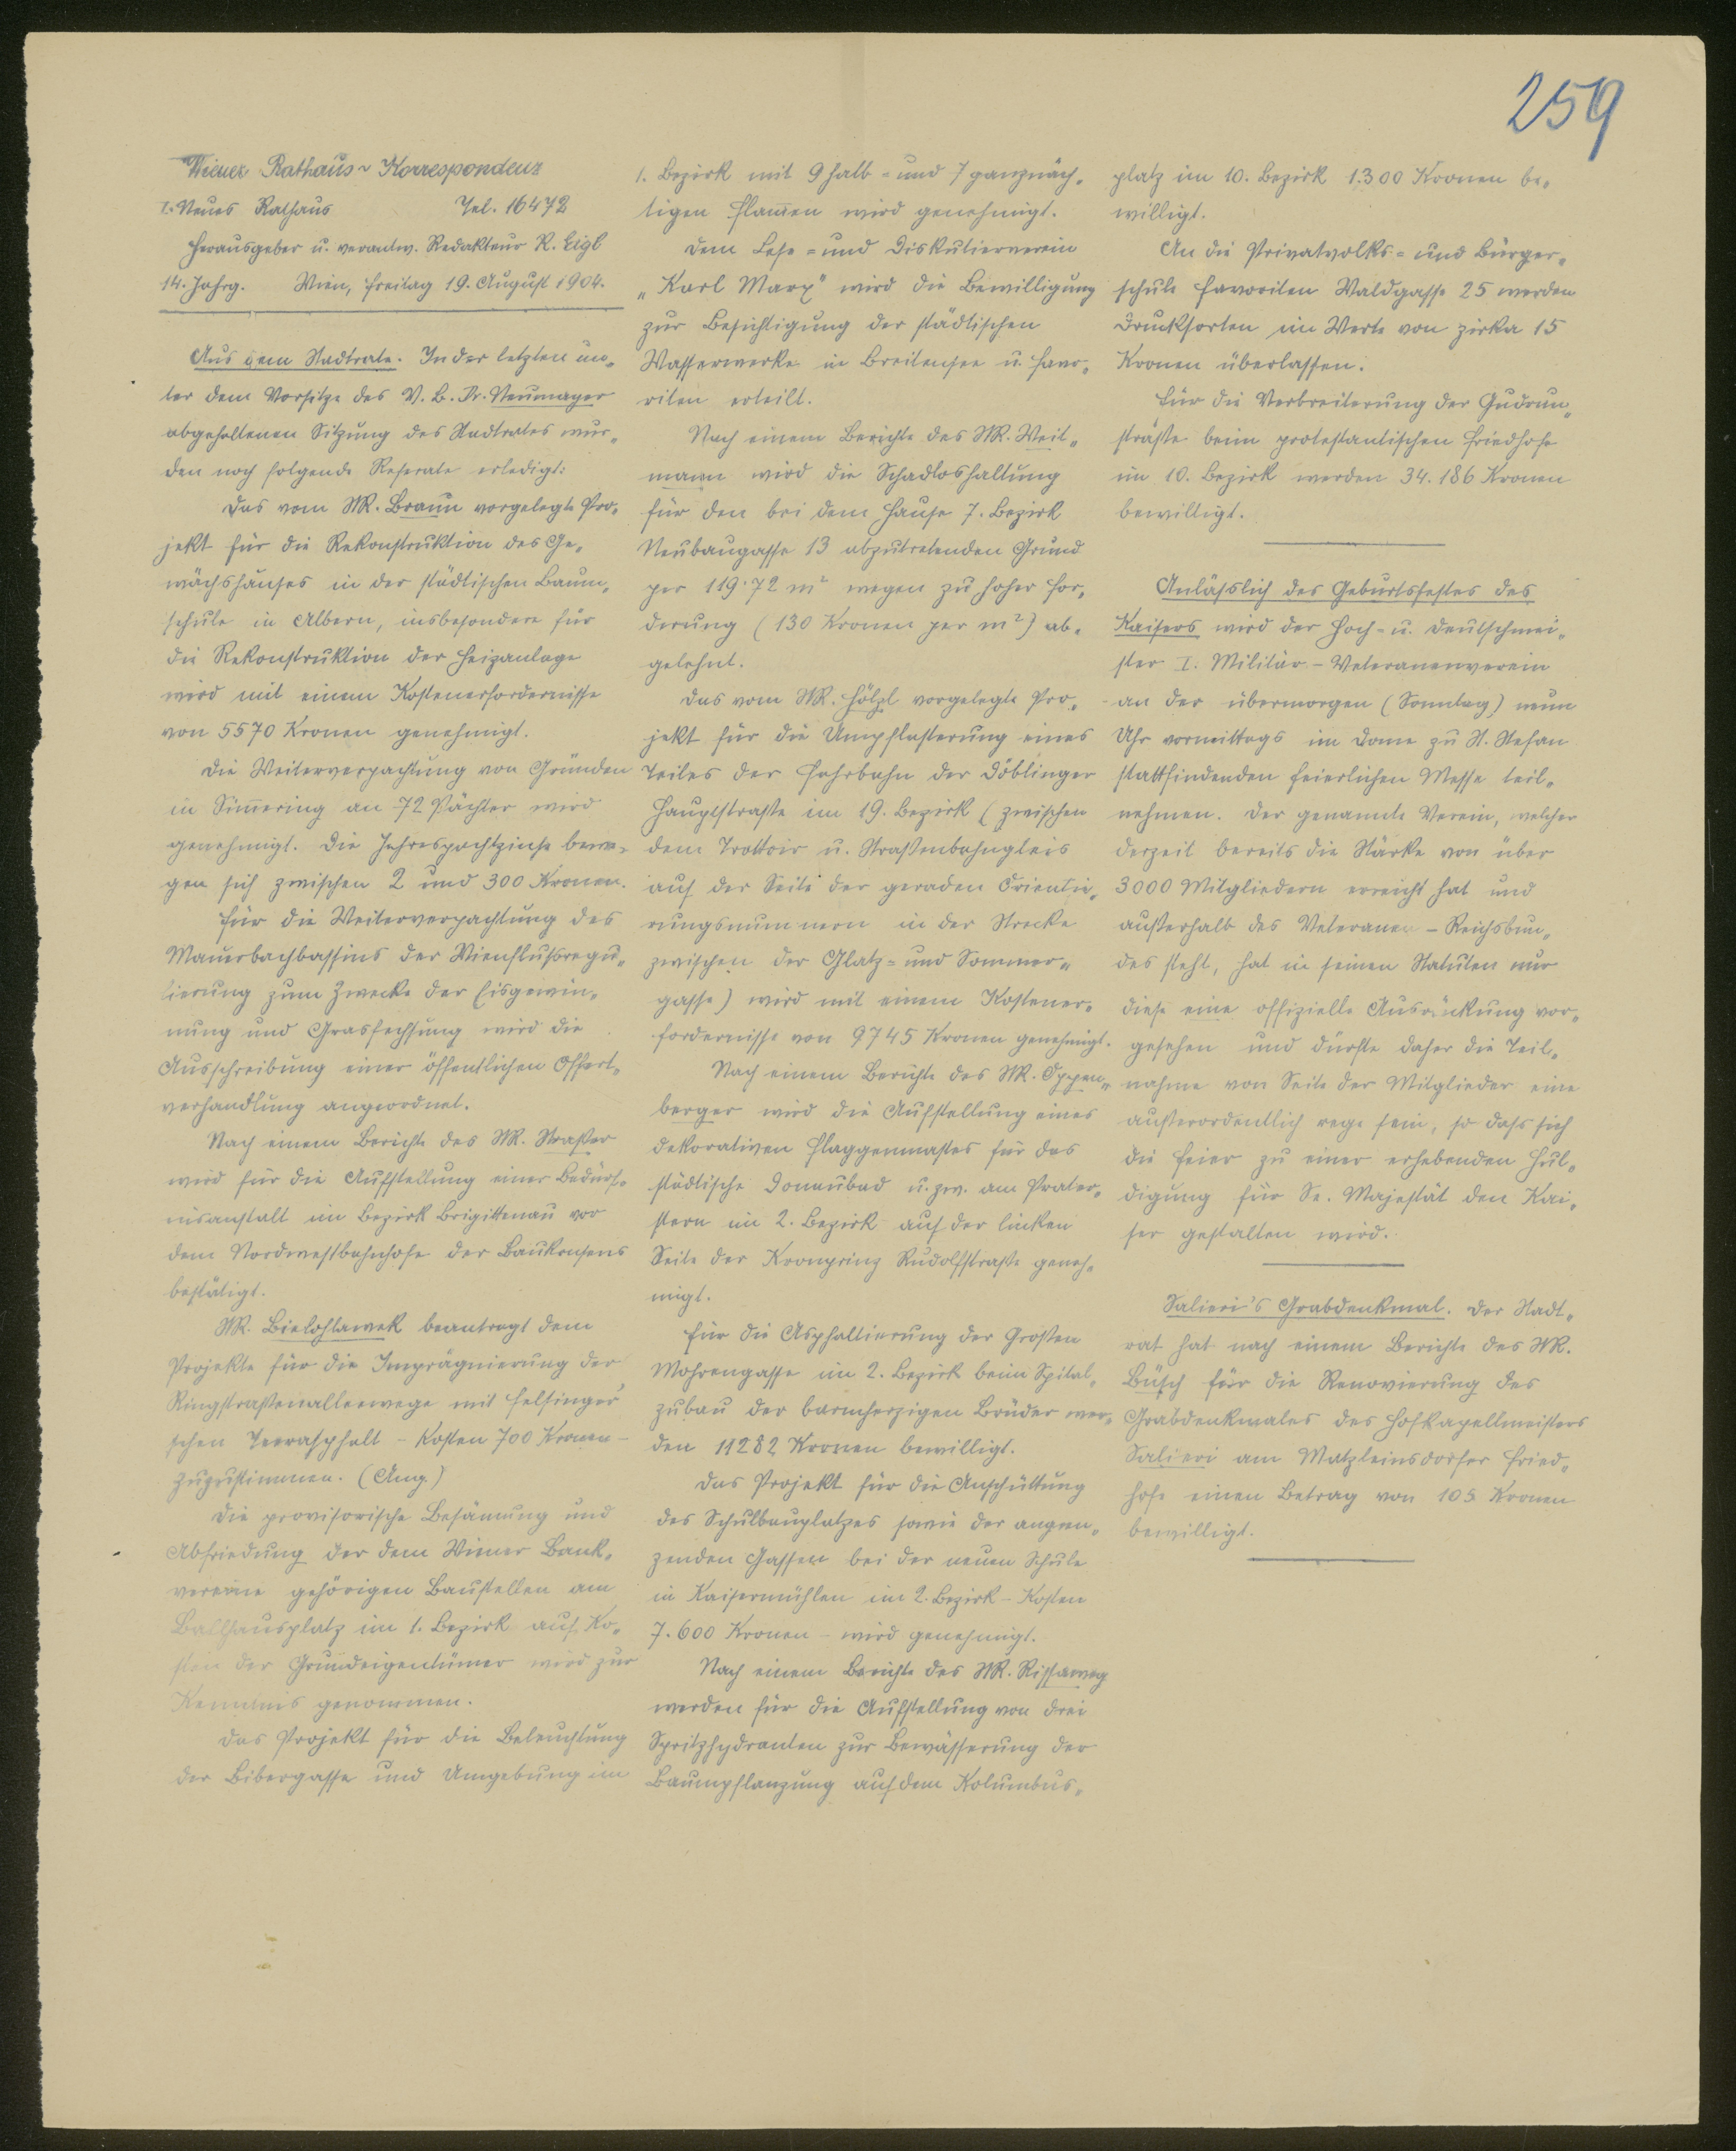 259
Wiener Rathaus-Korrespondenz
I. Neues Rathaus Tel. 16472
Herausgeber u. verantw. Redakteur R. Eigl
14. Jahrg. Wien, Freitag 19. August 1904.
Aus dem Stadtrate. In der letzten un-
ter dem Vorsitze des V. B. Dr. Neumayer
abgehaltenen Sitzung des Stadtrates wur-
den noch folgende Referate erledigt:
Das vom StR. Braun vorgelegte Pro-
jekt für die Rekonstruktion des Ge-
wächshauses in der städtischen Baum-
schule in Albern, insbesondere für
die Rekonstruktion der Heizanlage
wird mit einem Kostenerfordernisse
von 5570 Kronen genehmigt.
Die Weiterverpachtung von Gründen
in Sim̅ering an 72 Pächter wird
genehmigt. Die Jahrespachtzinse bewe-
gen sich zwischen 2 und 300 Kronen.
Für die Weiterverpachtung des
Mauerbachbassins der Wienflußregu-
lierung zum Zwecke der Eisgewin-
nung und Grasfechsung wird die
Ausschreibung einer öffentlichen Offert-
verhandlung angeordnet.
Nach einem Berichte des StR. Straßer
wird für die Aufstellung einer Bedürf-
nisanstalt im Bezirk Brigittenau vor
dem Nordwestbahnhofe der Baukonsens
bestätigt.
StR. Bielohlawek beantragt dem
Projekte für die Imprägnierung der
Ringstraßenalleewege mit Felsinger'
schen Teerasphalt - Kosten 700 Kronen -
zuzustimmen. (Ang.)
Die provisorische Besämung und
Abfriedung der dem Wiener Bank-
vereine gehörigen Baustellen am
Ballhausplatz im 1. Bezirk auf Ko-
sten der Grundeigentümer wird zur
Kenntnis genommen.
Das Projekt für die Beleuchtung
der Bibergasse und Umgebung im
1. Bezirk mit 9 halb- und 7 ganznäch-
tigen Flam̅en wird genehmigt.
Dem Lese- und Diskutierverein
„Karl Marx" wird die Bewilligung
zur Besichtigung der städtischen
Wasserwerke in Breitensee u. Favo-
riten erteilt.
Nach einem Berichte des StR. Weit-
mann wird die Schadloshaltung
für den bei dem Hause 7. Bezirk
Neubaugasse 13 abzutretenden Grund
per 119·72 m² wegen zu hoher For-
derung (130 Kronen per m²) ab-
gelehnt.
Das vom StR. Hölzl vorgelegte Pro-
jekt für die Umpflasterung eines
Teiles der Fahrbahn der Döblinger
Hauptstraße im 19. Bezirk (zwischen
dem Trottoir u. Straßenbahngleis
auf der Seite der geraden Orientie-
rungsnummern in der Strecke
zwischen der Glatz- und Sommer-
gasse) wird mit einem Kostener-
fordernisse von 9745 Kronen genehmigt.
Nach einem Berichte des StR. Oppen-
berger wird die Aufstellung eines
dekorativen Flaggenmastes für das
städtische Donaubad u. zw. am Prater-
stern im 2. Bezirk auf der linken
Seite der Kronprinz Rudolfstraße geneh-
migt.
Für die Asphaltierung der Großen
Mohrengasse im 2. Bezirk beim Spital-
zubau der barmherzigen Brüder wer-
den 11282 Kronen bewilligt.
Das Projekt für die Anschüttung
des Schulbauplatzes sowie der angren-
zenden Gassen bei der neuen Schule
in Kaisermühlen im 2. Bezirk - Kosten
7.600 Kronen - wird genehmigt.
Nach einem Berichte des StR. Rissaweg
werden für die Aufstellung von drei
Spritzhydranten zur Bewässerung der
Baumpflanzung auf dem Kolumbus-
platz im 10. Bezirk 1.300 Kronen be-
willigt.
An die Privatvolks- und Bürger-
schule Favoriten Waldgasse 25 werden
Drucksorten im Werte von zirka 15
Kronen überlassen.
Für die Verbreiterung der Gudrun-
straße beim protestantischen Friedhofe
im 10. Bezirk werden 34.186 Kronen
bewilligt.
Anläßlich des Geburtsfestes des
Kaisers wird der Hoch- u. Deutschmei-
ster I. Militär-Veteranenverein
an der übermorgen (Sonntag) neun
Uhr vormittags im Dome zu St. Stefan
stattfindenden feierlichen Messe teil-
nehmen. Der genannte Verein, welcher
derzeit bereits die Stärke von über
3000 Mitgliedern erreicht hat und
außerhalb des Veteranen-Reichsbun-
des steht, hat in seinen Statuten nur
diese eine offizielle Ausrückung vor-
gesehen und dürfte daher die Teil-
nahme von Seite der Mitglieder eine
außerordentlich rege sein, so daß sich
die Feier zu einer erhebenden Hul-
digung für Se. Majestät den Kai-
ser gestalten wird.
Salieri's Grabdenkmal. Der Stadt-
rat hat nach einem Berichte des StR.
Büsch für die Renovierung des
Grabdenkmales des Hofkapellmeisters
Salieri am Matzleinsdorfer Fried-
hofe einen Betrag von 105 Kronen
bewilligt.